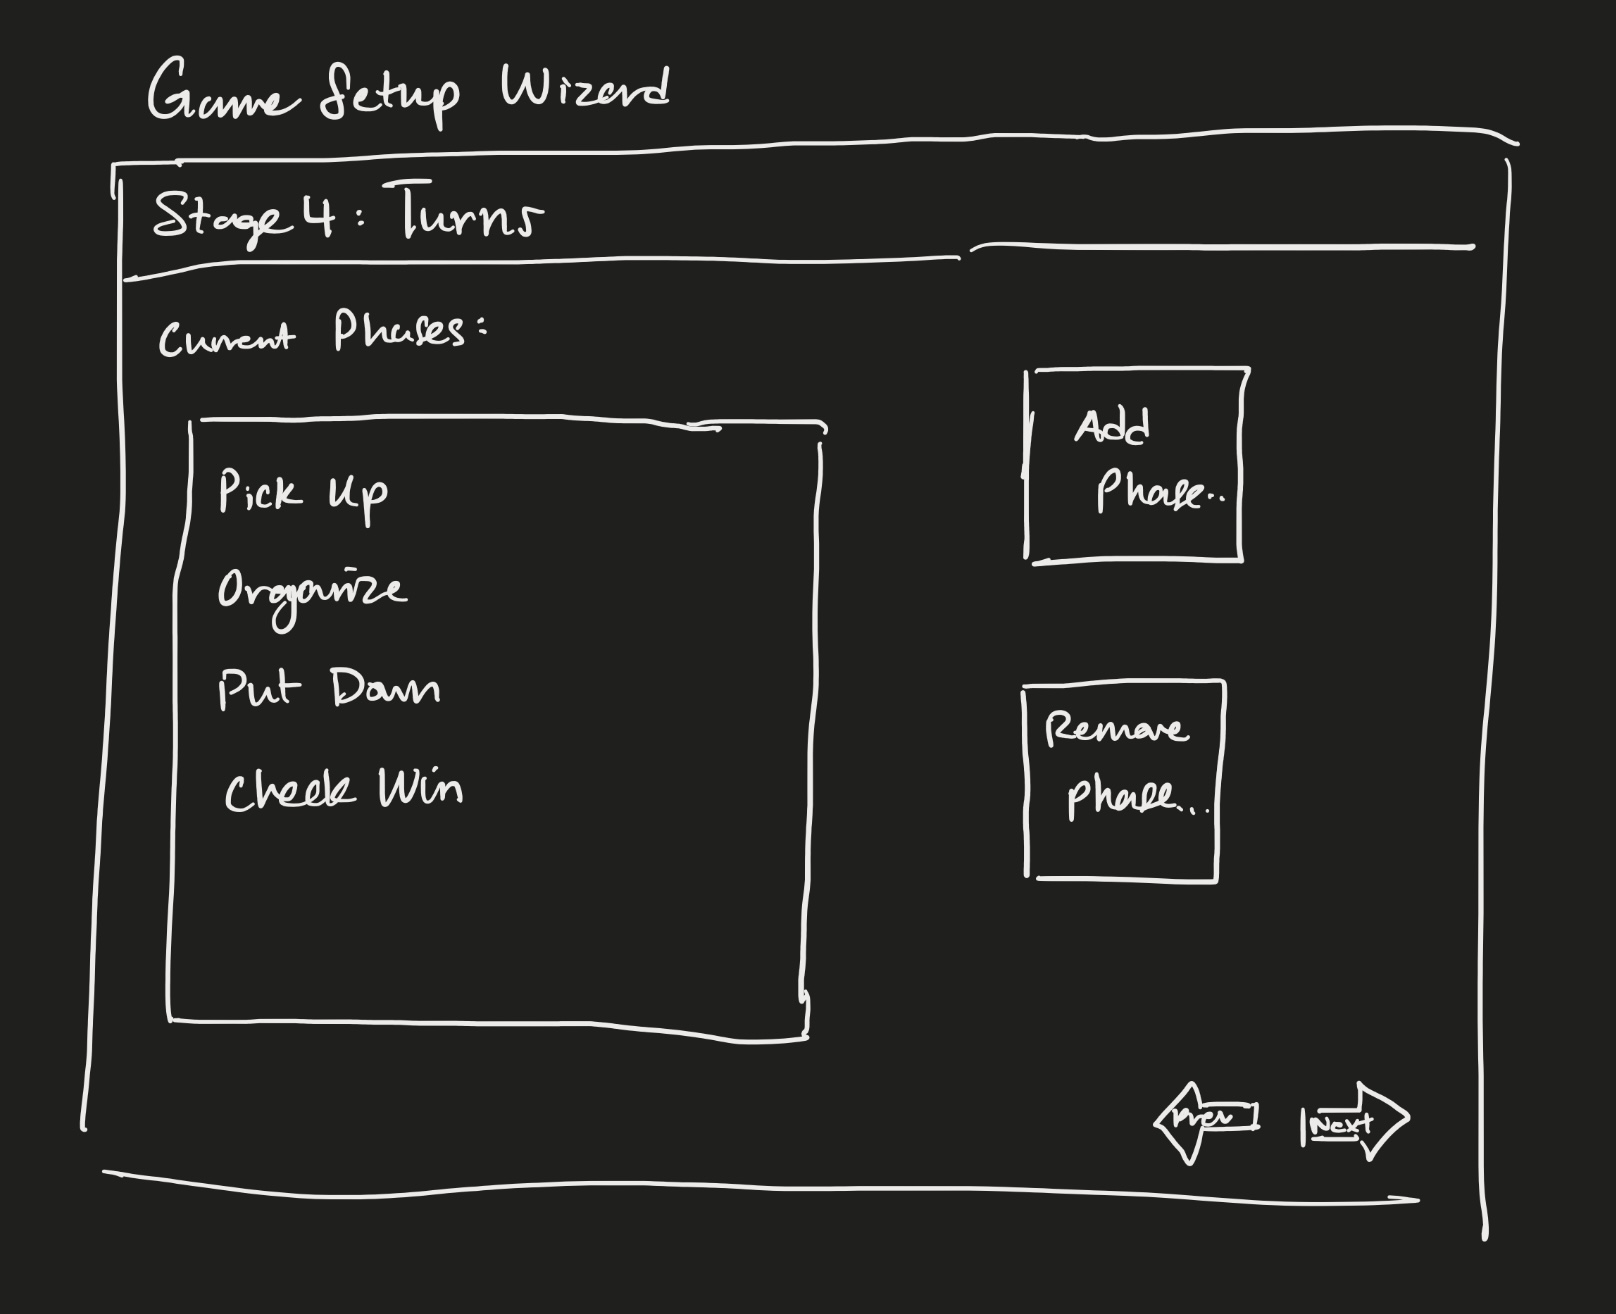 Game Setup Wizard
Stage 4: Turns
Current Phases:
Pick Up
Organize
Put Down
Check Win
Add
Phase..
Remove
Phase...
Prev
Next